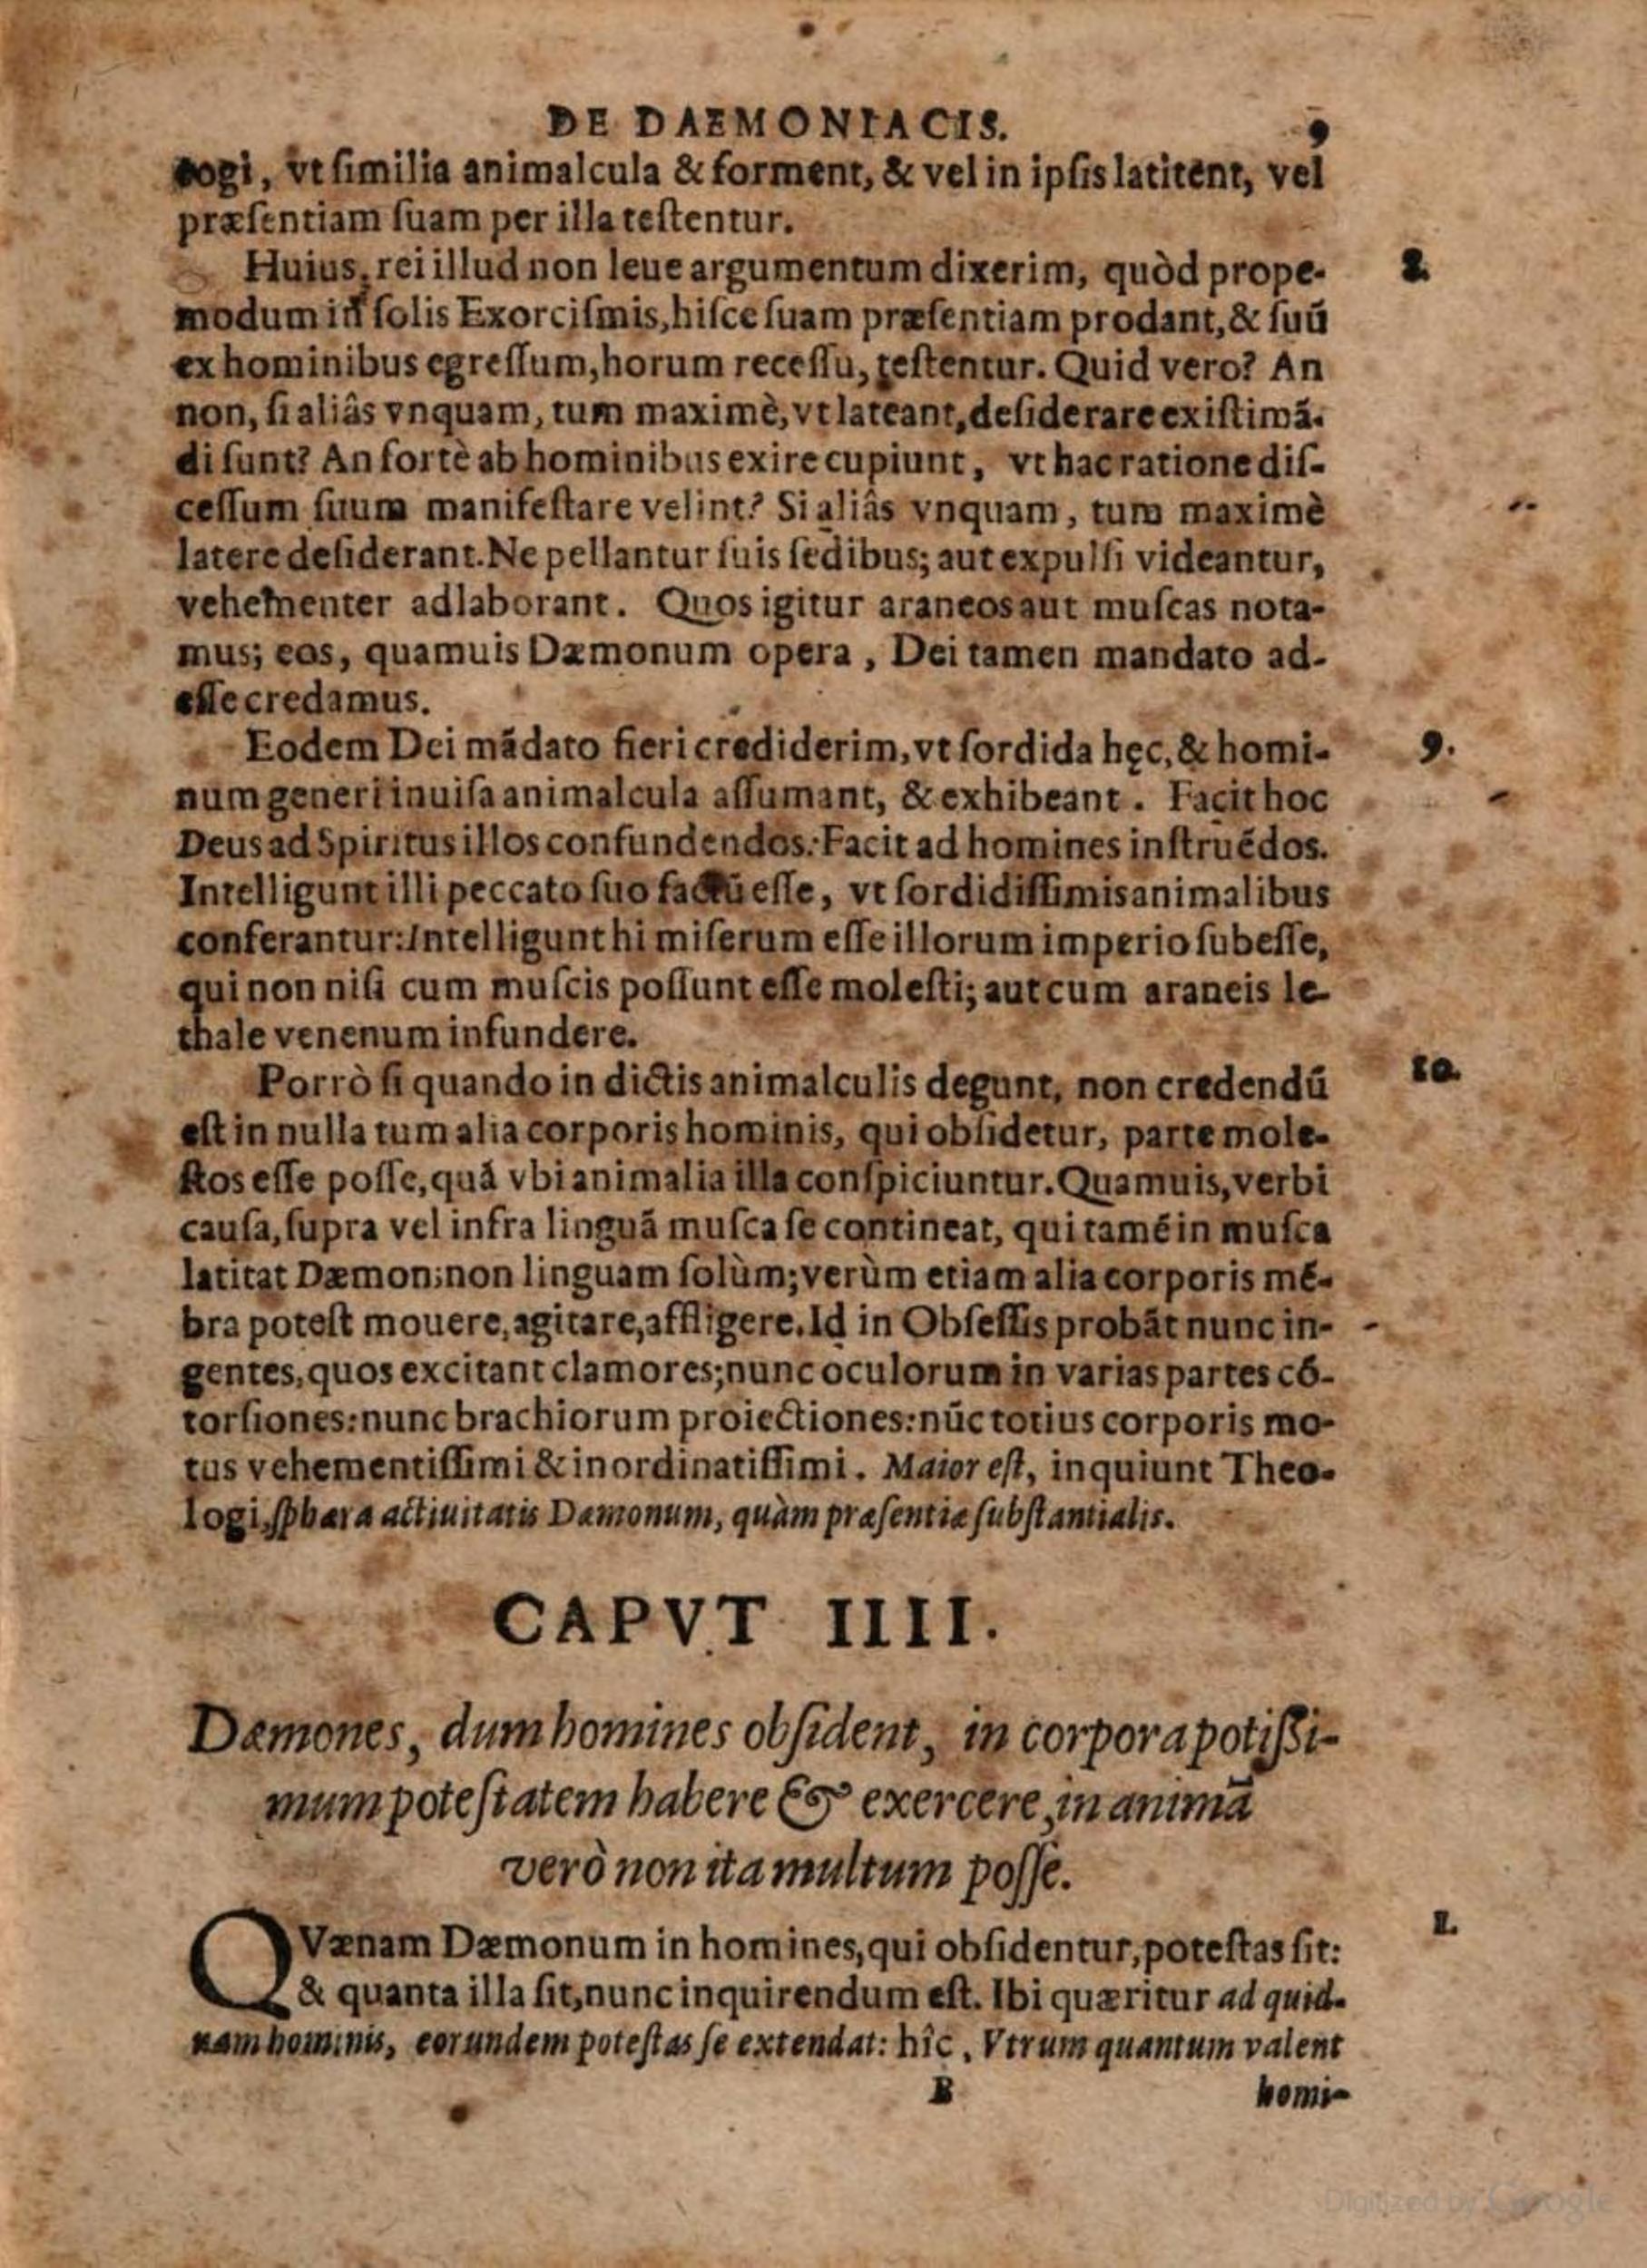 DE DAEMONIACIS. 9
cogi, vt ſimilia animalcula & forment, & vel in ipſis latitent, vel
præſentiam ſuam per illa teſtentur.
Huius, rei illud non leue argumentum dixerim, quòd prope- 8.
modum in ſolis Exorciſmis, hiſce ſuam præſentiam prodant, & ſuū
ex hominibus egreſſum, horum receſſu, teſtentur. Quid vero? An
non, ſi aliâs vnquam, tum maximè, vt lateant, deſiderare exiſtimā-
di ſunt? An fortè ab hominibus exire cupiunt, vt hac ratione diſ-
ceſſum ſuum manifeſtare velint? Si aliâs vnquam, tum maximè
latere deſiderant. Ne pellantur ſuis ſedibus; aut expulſi videantur,
vehementer adlaborant. Quos igitur araneos aut muſcas nota-
mus; eos, quamuis Dæmonum opera, Dei tamen mandato ad-
eſſe credamus.
Eodem Dei mādato fieri crediderim, vt ſordida hęc, & homi- 9.
num generi inuiſa animalcula aſſumant, & exhibeant. Facit hoc
Deus ad Spiritus illos confundendos: Facit ad homines inſtruēdos.
Intelligunt illi peccato ſuo factū eſſe, vt ſordidiſſimis animalibus
conferantur: Intelligunt hi miſerum eſſe illorum imperio ſubeſſe,
qui non niſi cum muſcis poſſunt eſſe moleſti; aut cum araneis le-
thale venenum infundere.
Porrò ſi quando in dictis animalculis degunt, non credendū 10.
eſt in nulla tum alia corporis hominis, qui obſidetur, parte mole-
ſtos eſſe poſſe, quā vbi animalia illa conſpiciuntur. Quamuis, verbi
cauſa, ſupra vel infra linguā muſca ſe contineat, qui tamē in muſca
latitat Dæmon; non linguam ſolùm; verùm etiam alia corporis mē-
bra poteſt mouere, agitare, affligere. Id in Obſeſſis probāt nunc in-
gentes, quos excitant clamores; nunc oculorum in varias partes cō-
torſiones: nunc brachiorum proiectiones: nūc totius corporis mo-
tus vehementiſſimi & inordinatiſſimi. Maior eſt, inquiunt Theo-
logi, ſphæra actiuitatis Dæmonum, quàm præſentiæ ſubſtantialis.
CAPVT IIII.
Dæmones, dum homines obſident, in corpora potiſſi-
mum poteſtatem habere & exercere, in animā
verò non ita multum poſſe.
QVænam Dæmonum in homines, qui obſidentur, poteſtas ſit: 1.
& quanta illa ſit, nunc inquirendum eſt. Ibi quæritur ad quid-
nam hominis, eorundem poteſtas ſe extendat: hîc, Vtrum quantum valent
B homi-
Digitized by Google